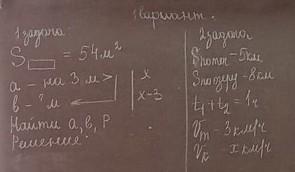 1 вариант.
1 задача:
S▭ = 54 м²
а - на 3 м > | x
в - ? м | x-3
Найти а, в, Р
Решение:
2 задача
Sпоток - 5 км
Sпо озеру - 8 км
t₁ + t₂ = 1 ч
Vт - 3 км/ч
Vк - x км/ч